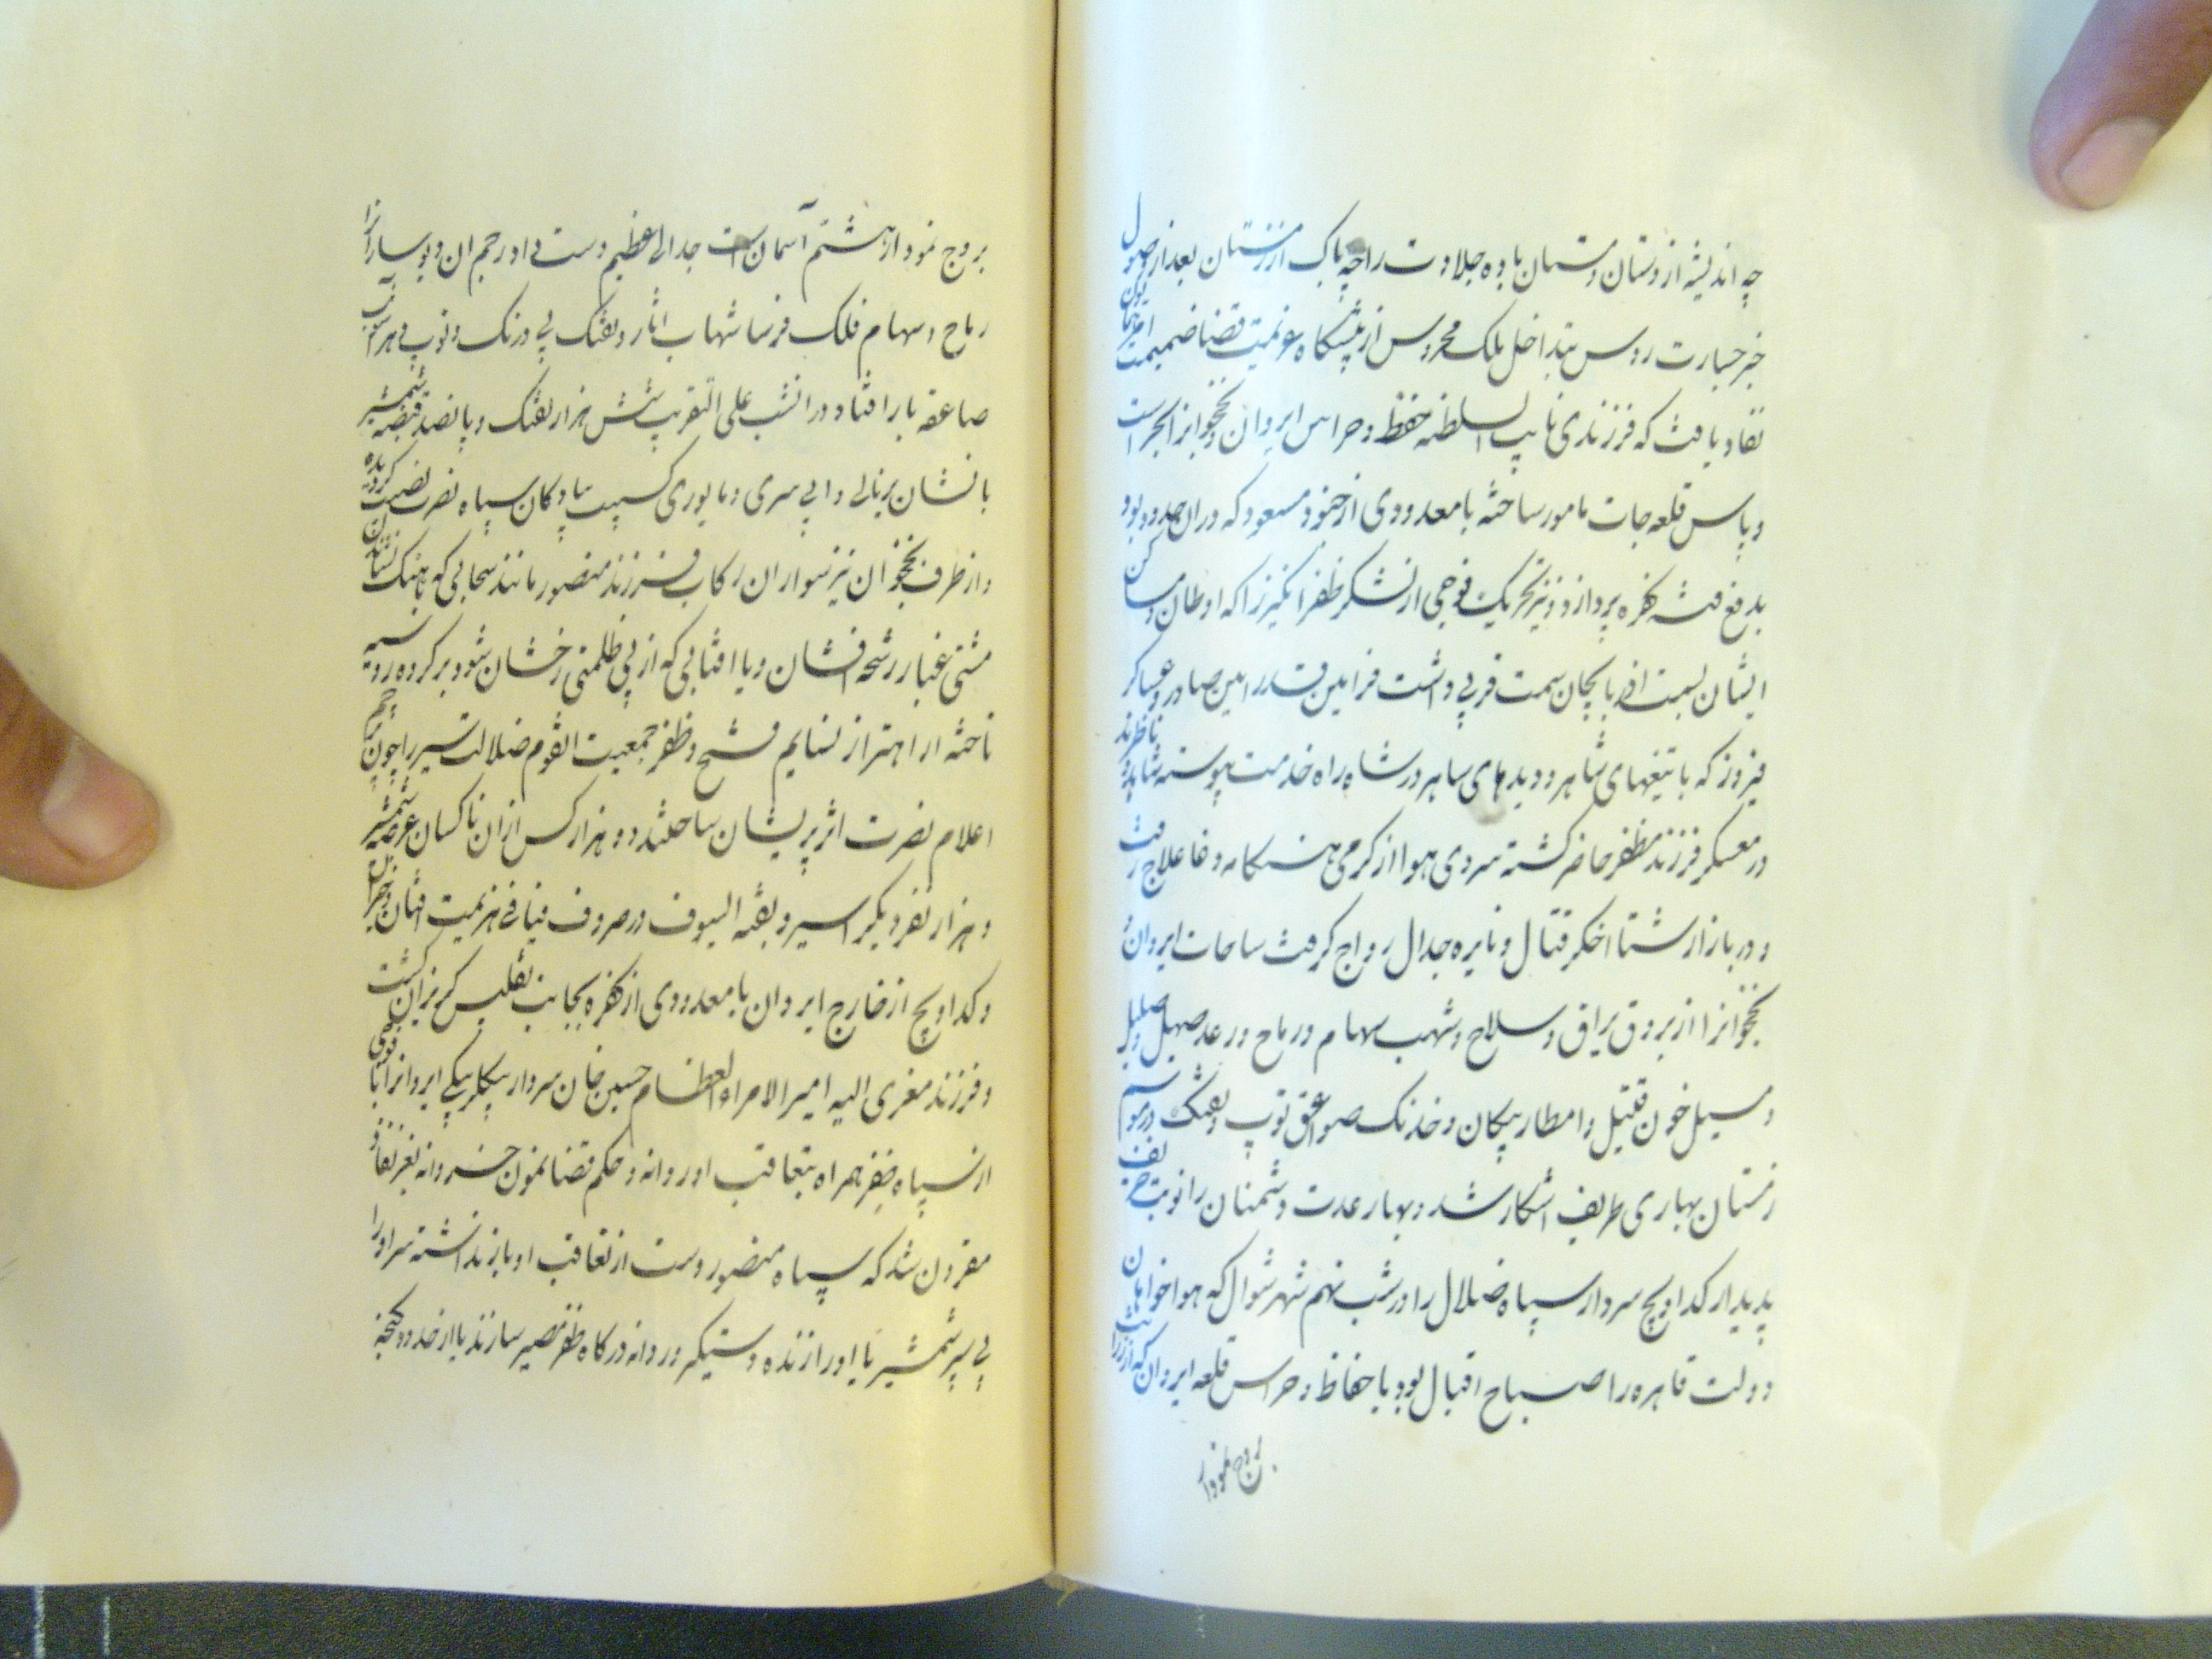 چه اندیشه از دستان و مستان باده جلادت را چه باک از زمستان بعد از وصول
خبر جسارت روس بتداخل ملک محروس از پیشگاه عزیمت قضا ضمیمت
نفاد یافت که فرزندی نایب السلطنه حفظ و حراس ایروان و نخجوانرا
و پاس قلعه جات مامور ساخته با معدودی از جنود مسعود که در آن حدود بود
بدفع فتنه کفره پردازد و نیز تحریک فوجی از لشکر ظفر انگیز را که اوطان و مساکن
ایشان بسمت اذربایجان سمت قربی داشت فرامین قدر امین صادر و عساکر
فیروز که با تیغهای شاهر و دیدهای ساهر در شاه راه خدمت پیوسته
در معسکر فرزند مظفر حاضر گشته سردی هوا از گرمی هنگامه وغا علاج رفت
و در بازار شتا اخگر قتال و نایره جدال رواج گرفت ساحات ایروان و
نخجوانرا از بروق یراق و سلاح و شهب سهام و رماح و رعد صهیل
و مسیل خون قتیل و امطار پیکان و خدنگ صواعق توپ و تفنگ در موسم
زمستان بهاری طریف اشکار شد و بهار عدت دشمنان را نوبت خریف
پدیدار کداویچ سردار سپاه ضلال را در شب نهم شهر شوال که هواخواهان
دولت قاهره را صباح اقبال بود با حفاظ و حراس قلعه ایروان که
بروج نمودار
بروج نمودار هشتم آسمان است جدالی عظیم دست داد و رجم ان دیو ساران را
رماح و سهام فلک فرسا شهاب اثار و تفنگ بی درنگ و توپ
صاعقه بار افتاد در انشب علی التقریب شش هزار تفنگ و پانصد قبضه شمشیر
با نشان برنالی و ابی سری و مایوری کسیب پیادگان سپاه نصرت نصیب گردیده
و از طرف نخجوان نیز سواران رکاب فرزند منصور مانند سحابی که باهنگ نشاندن
مشتی غبار رشحه افشان و یا افتابی که از پی ظلمتی رخشان شود بر کرده رو سیه
تاخته از اهتزاز نسایم فتح و ظفر جمعیت القوم ضلالت سیر را چون پرچم
اعلام نصرت اثر پریشان ساختند دو هزار کس از ان ناکسان عرضه شمشیر
و هزار نفر دیگر اسیر و بقیه السیوف در صروف فیافی هزیمت افتان و خیزان
و کداویچ از خارج ایروان با معدودی از کفره بجانب تفلیس گریزان گشت
و فرزند معزی الیه امیر الامراء العظام حسین خان سردار بیگلربیگی ایروانرا با فوجی
از سپاه ظفر همراه بتعاقب او روانه و حکم قضا نمون خسروانه بعز نفاذ
مقرون شد که سپاه منصور دست از تعاقب او باز نداشته سر او را
بی سپر شمشیر یا او را زنده دستگیر و روانه درگاه ظفر مصیر سازند یا از حدود گنجه